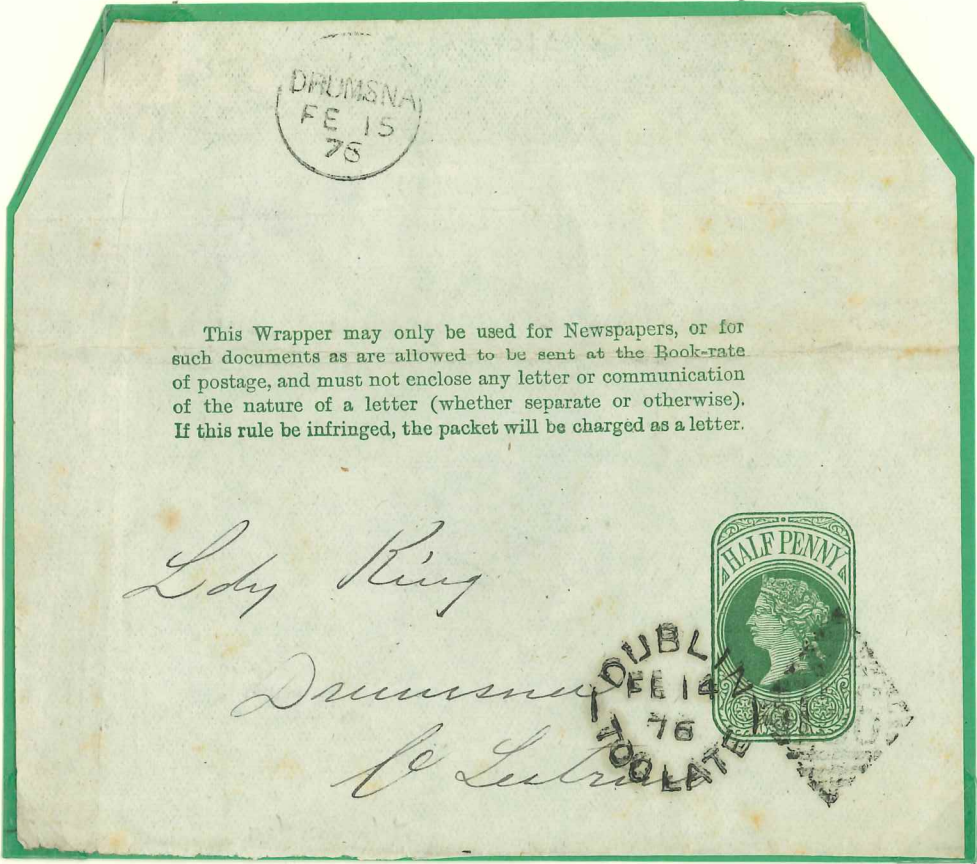 DRUMSNA
FE 15
76
This Wrapper may only be used for Newspapers, or for
such documents as are allowed to be sent at the Book-rate
of postage, and must not enclose any letter or communication
of the nature of a letter (whether separate or otherwise).
If this rule be infringed, the packet will be charged as a letter.
HALF PENNY
Ldy King
Drumsna
Co Leitrim
DUBLIN
FE 14
76
TOO LATE